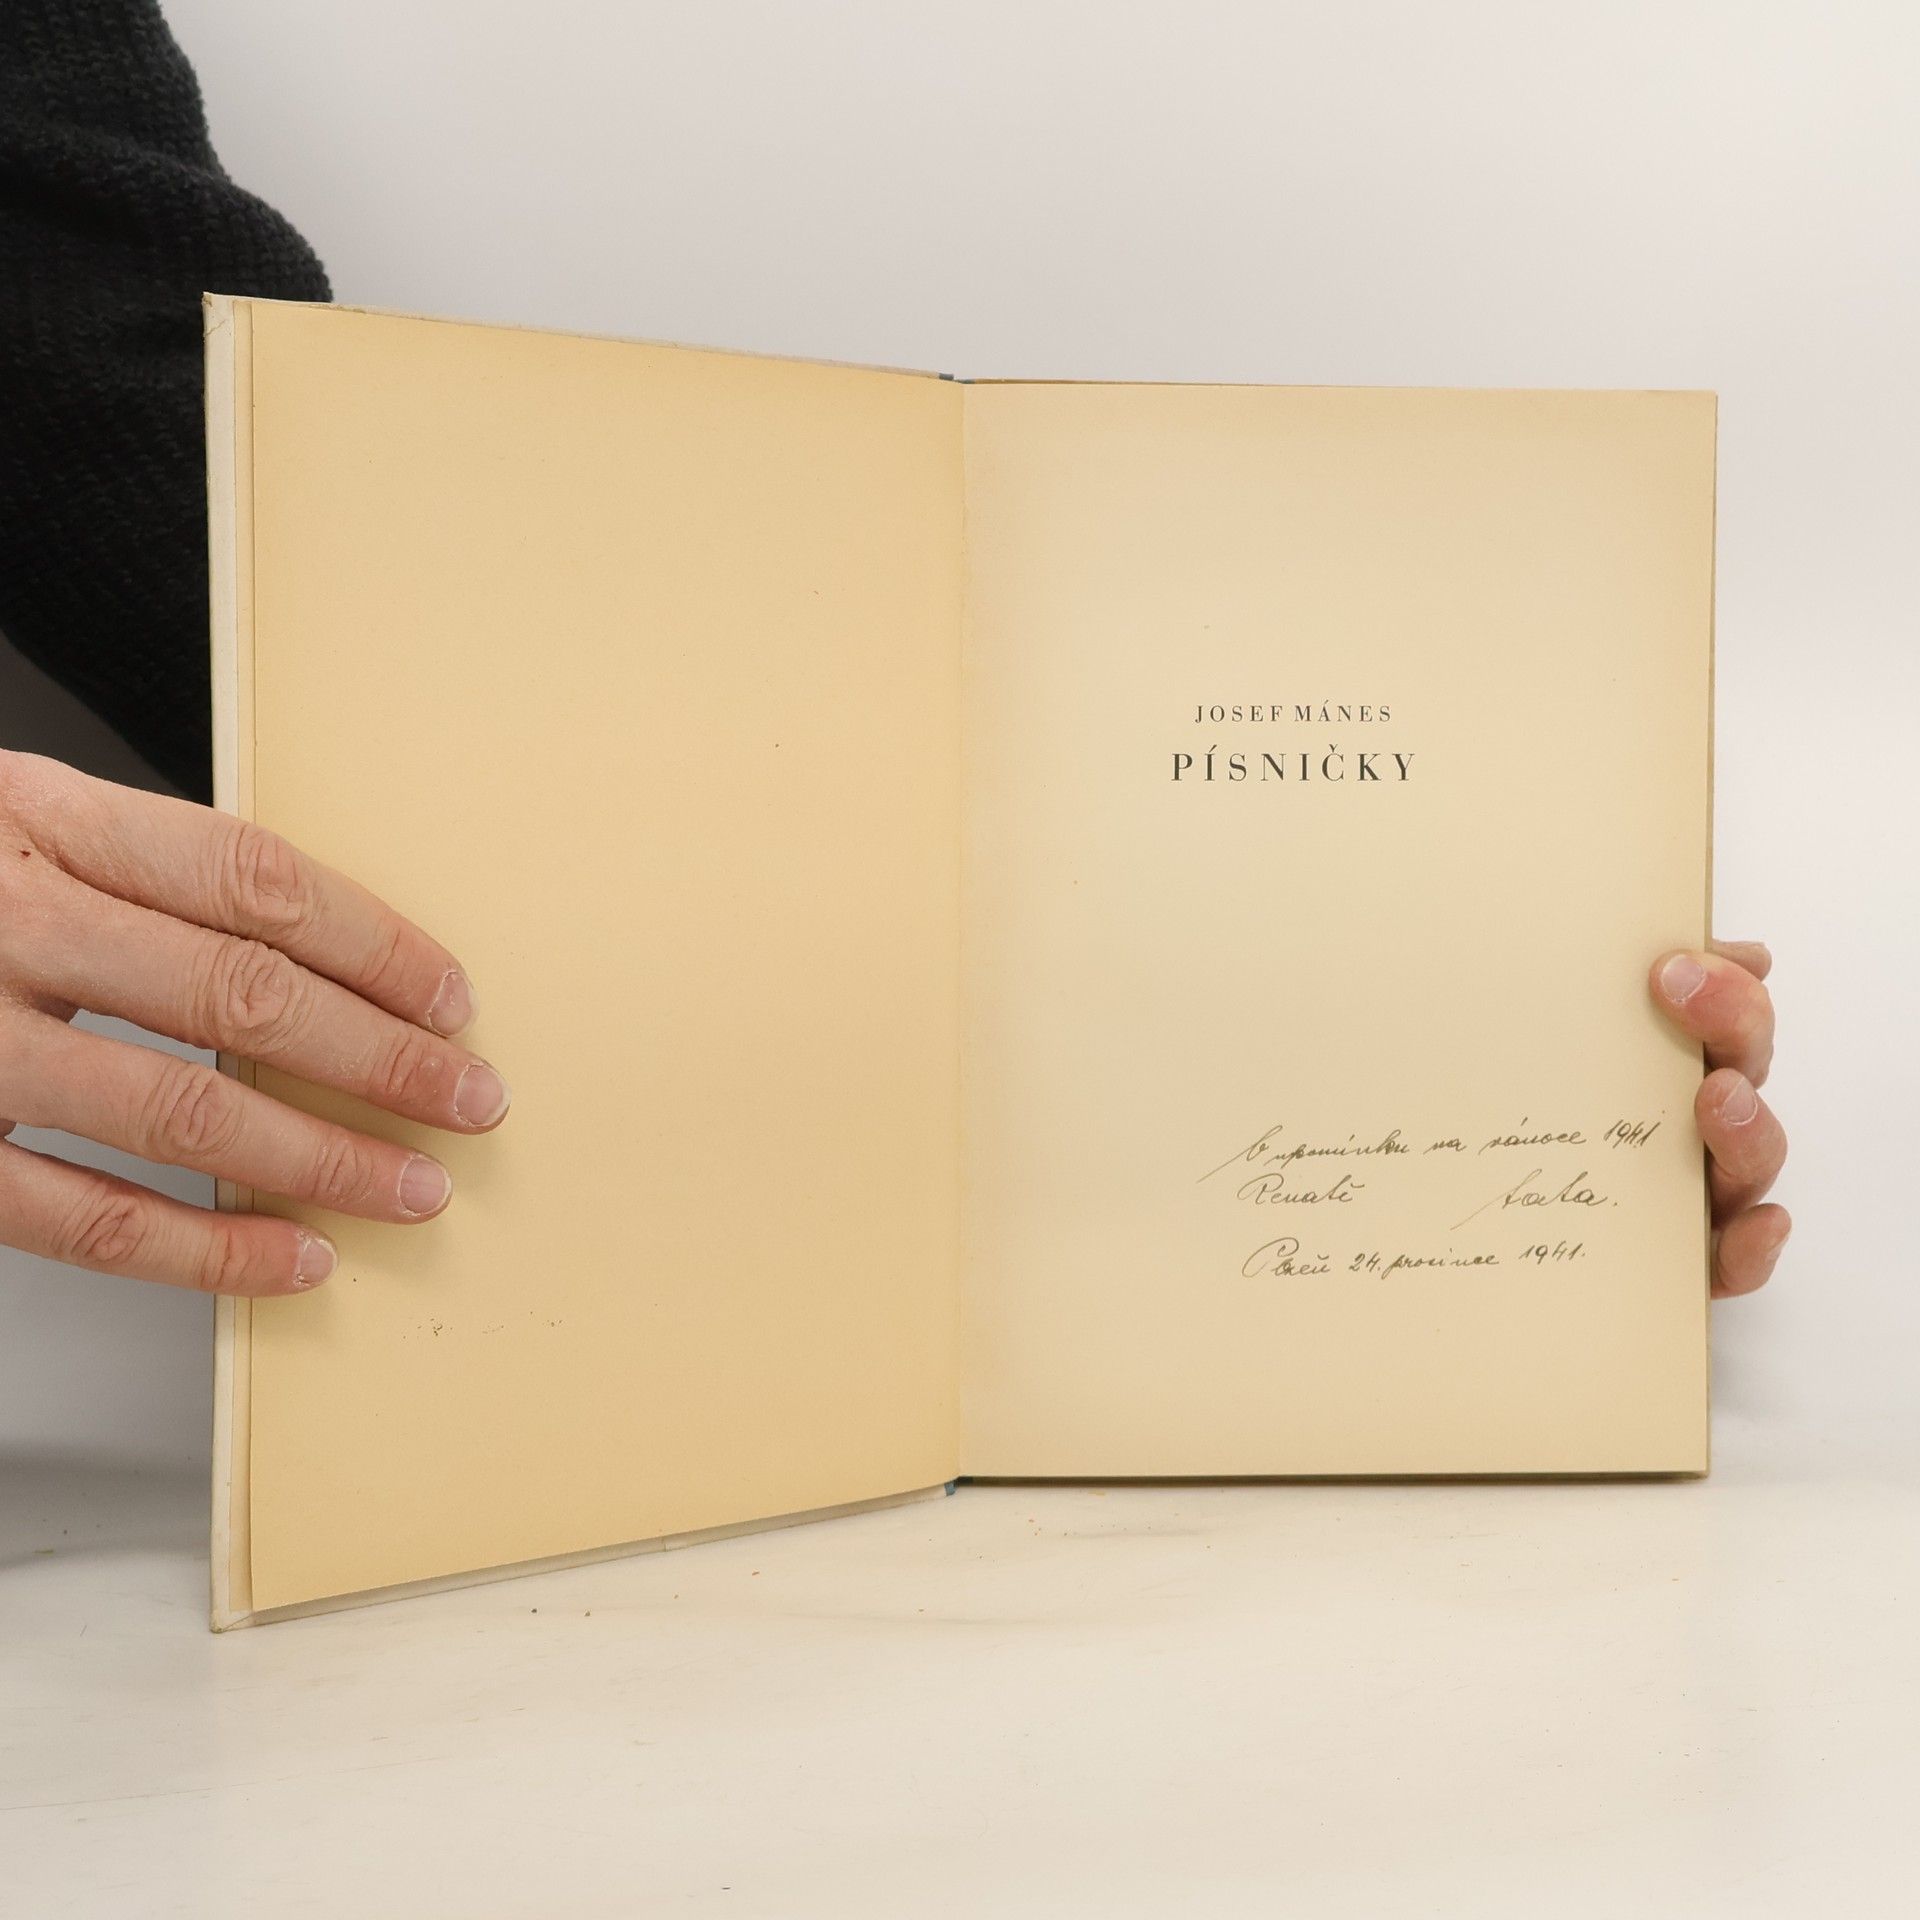 JOSEF MÁNES
PÍSNIČKY
V upomínku na vánoce 1941
Renatě tata.
Plzeň 24. prosince 1941.